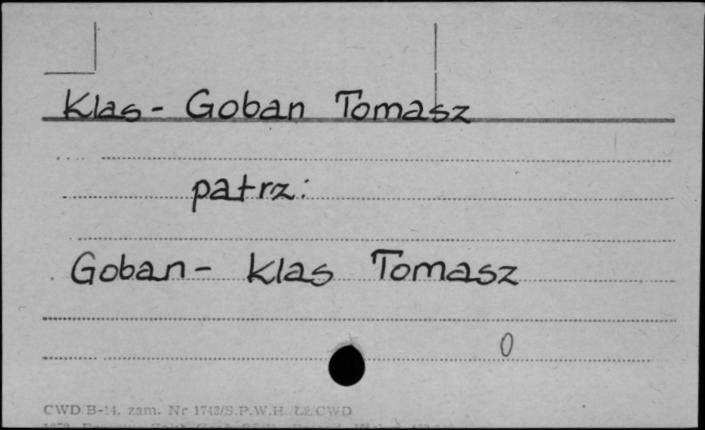 Klas - Goban Tomasz
patrz:
Goban - Klas Tomasz
0
CWD B-14, zam. Nr 1743/S.P.W.H. CWD